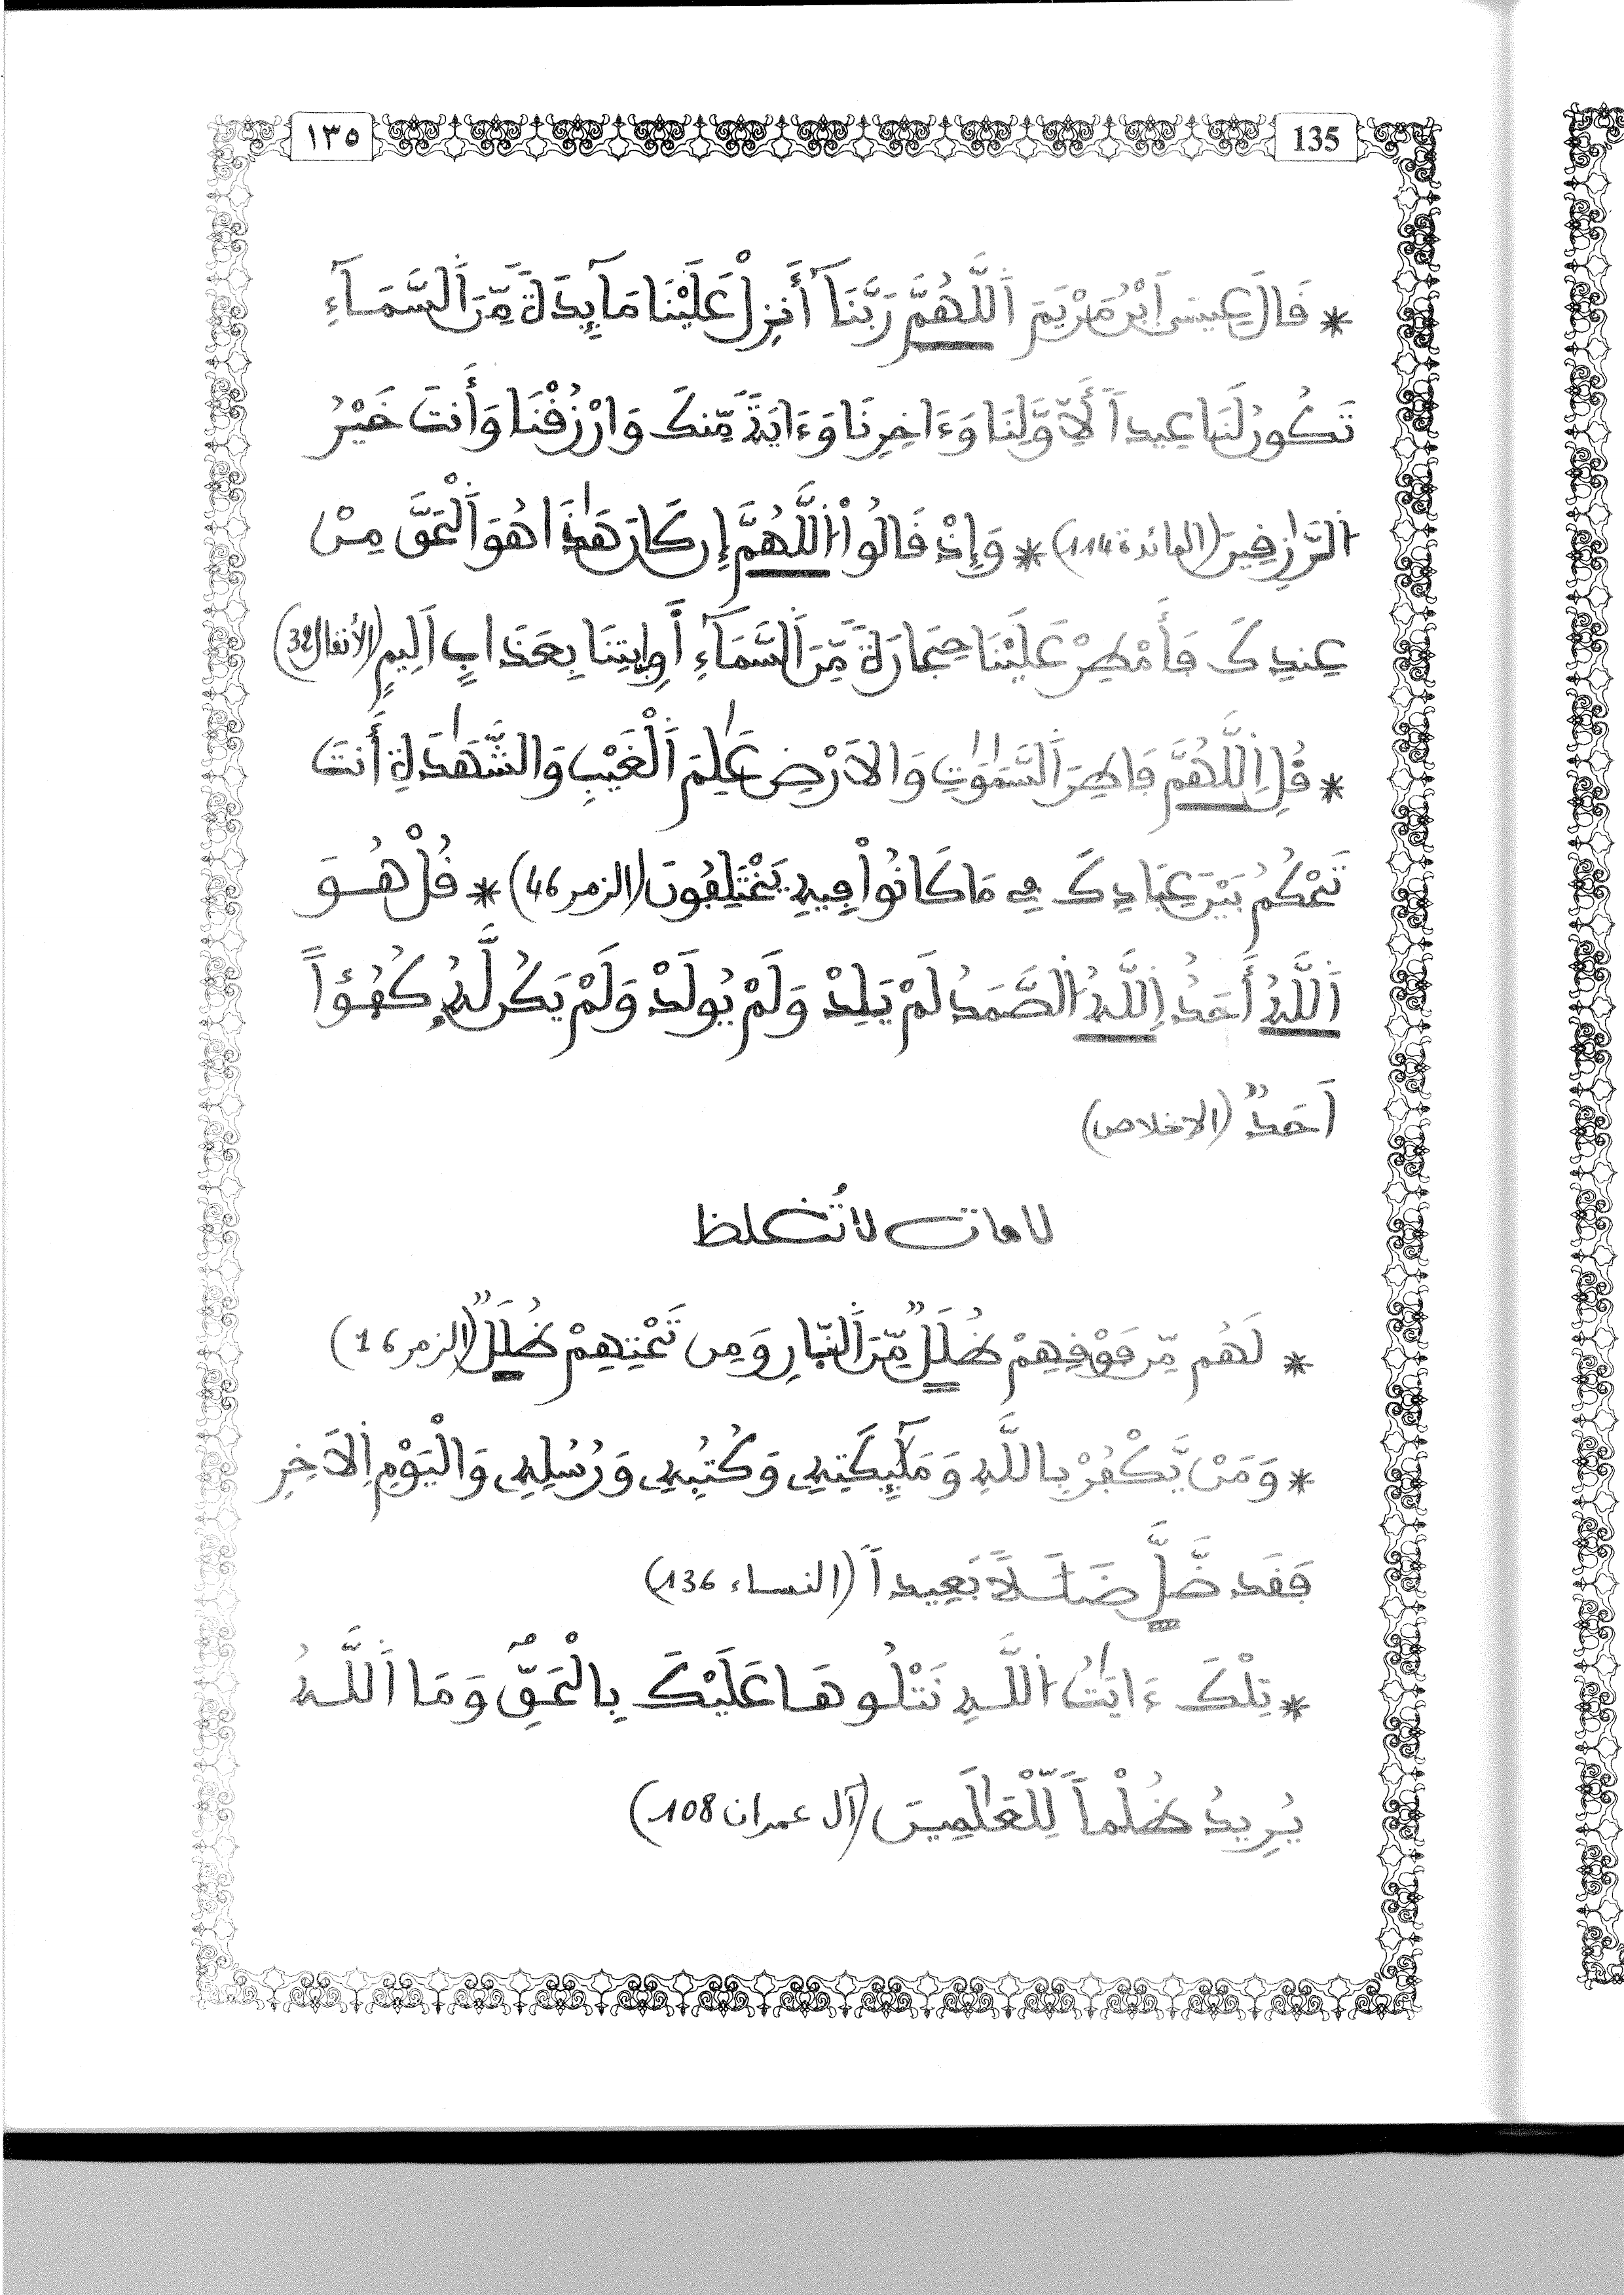 135 ١٣٥
* قَالَ عِيسَى اَبْنُ مَرْيَمَ اَللَّهُمَّ رَبَّنَآ أَنزِلْ عَلَيْنَا مَآئِدَةً مِّنَ اَلسَّمَآءِ
تَكُونُ لَنَا عِيداً لِّأَوَّلِنَا وَءَاخِرِنَا وَءَايَةً مِّنكَ وَارْزُقْنَا وَأَنتَ خَيْرُ
اُلرَّٰزِقِينَ (المائدة 114) * وَإِذْ قَالُواْ اُللَّهُمَّ إِن كَانَ هَٰذَا هُوَ اَلْحَقَّ مِنْ
عِندِكَ فَأَمْطِرْ عَلَيْنَا حِجَارَةً مِّنَ اَلسَّمَآءِ أَوِ اِيتِنَا بِعَذَابٍ اَلِيمٍ (الأنفال 32)
* قُلِ اِللَّهُمَّ فَاطِرَ اَلسَّمَٰوَٰتِ وَالاَرْضِ عَٰلِمَ اَلْغَيْبِ وَالشَّهَٰدَةِ أَنتَ
تَحْكُمُ بَيْنَ عِبَادِكَ فِي مَا كَانُواْ فِيهِ يَخْتَلِفُونَ (الزمر 46) * قُلْ هُوَ
اَللَّهُ أَحَدٌ اِللَّهُ اُلصَّمَدُ لَمْ يَلِدْ وَلَمْ يُولَدْ وَلَمْ يَكُن لَّهُ كُفُؤاً
اَحَدٌ (الإخلاص)
لامات لا تُغلظ
* لَهُم مِّن فَوْقِهِمْ ظُلَلٌ مِّنَ اَلنّارِ وَمِن تَحْتِهِمْ ظُلَلٌ (الزمر 16)
* وَمَنْ يَّكْفُرْ بِاللَّهِ وَمَلَٰٓئِكَتِهِ وَكُتُبِهِ وَرُسُلِهِ وَالْيَوْمِ اِلاَخِرِ
فَقَد ضَّلَّ ضَلَٰلاً بَعِيداً (النساء 136)
* تِلْكَ ءَايَٰتُ اُللَّهِ نَتْلُوهَا عَلَيْكَ بِالْحَقِّ وَمَا اَللَّهُ
يُرِيدُ ظُلْماً لِّلْعَٰلَمِينَ (آل عمران 108)